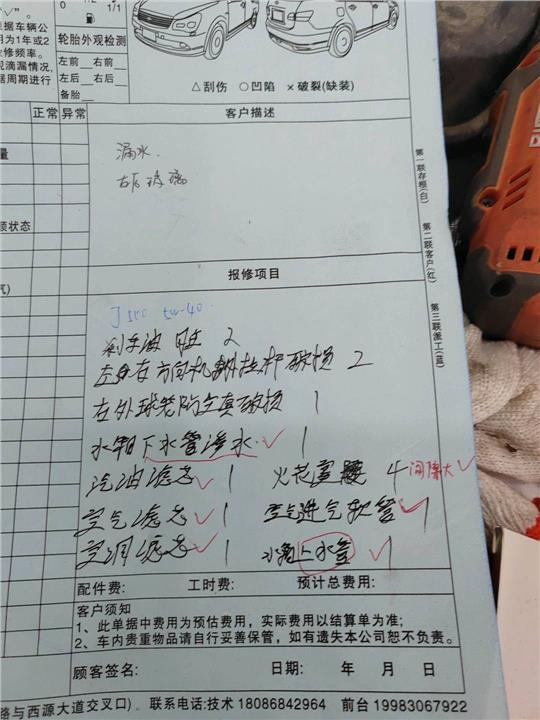 0 1/1
"√"
根据车辆公
用为1年或2
修频率。
观滴漏情况,
据周期进行
轮胎外观检测
左前 右前
左后 右后
备胎
△刮伤 ○凹陷 ×破裂(缺装)
正常 异常
客户描述
漏水
右后玻璃
量
须状态
气)
报修项目
5w-40
刹车油 2
左右方向机 拉杆破损 2
左外球笼防尘 破损 1
水箱下水管渗水 √ 1
汽油滤芯 √ 1 火花塞 4 间隙大 √
空气滤芯 √ 1 空气进气软管 √ 1
空调滤芯 √ 1 水箱上水管 √ 1
配件费: 工时费: 预计总费用:
客户须知
1、此单据中费用为预估费用,实际费用以结算单为准;
2、车内贵重物品请自行妥善保管,如有遗失本公司恕不负责。
顾客签名: 日期: 年 月 日
路与西源大道交叉口)。联系电话:技术 18086842964 前台 19983067922
第一联存根(白)
第二联客户(红)
第三联派工(蓝)